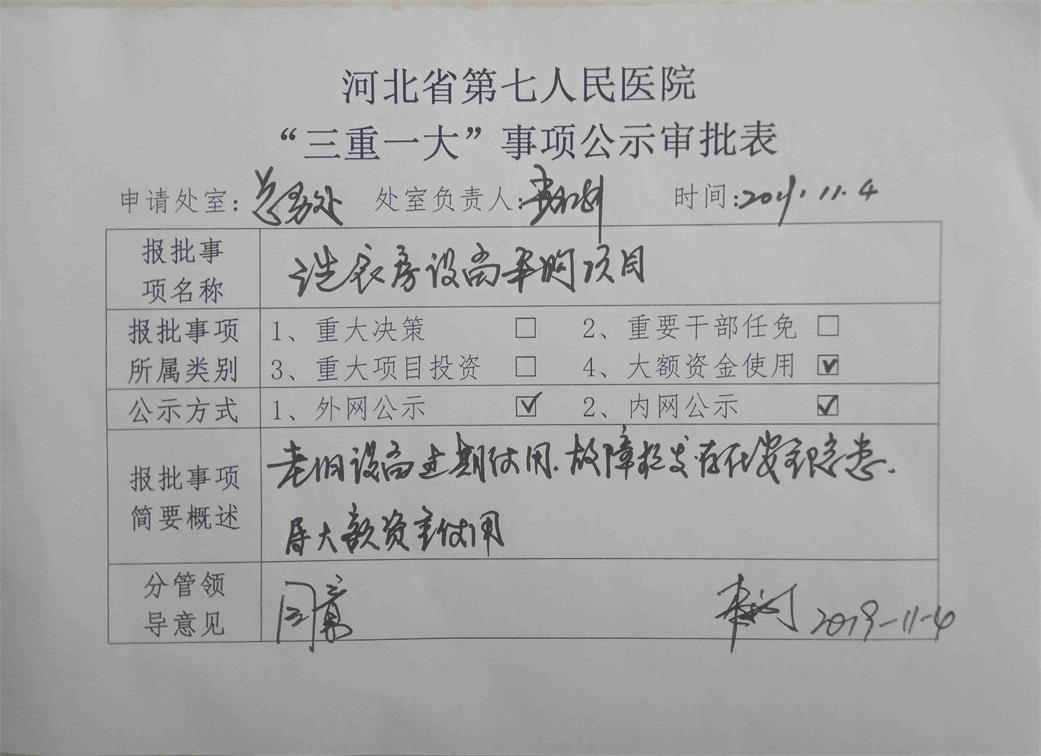 河北省第七人民医院
“三重一大”事项公示审批表
申请处室：总务处 处室负责人： 时间：2019.11.4
报批事项名称 洗衣房设备采购项目
报批事项所属类别 1、重大决策 □ 2、重要干部任免 □
3、重大项目投资 □ 4、大额资金使用 ☑
公示方式 1、外网公示 ☑ 2、内网公示 ☑
报批事项简要概述 老旧设备过期使用.故障频发.存在安全隐患.
属大额资金使用
分管领导意见 同意 2019-11-4